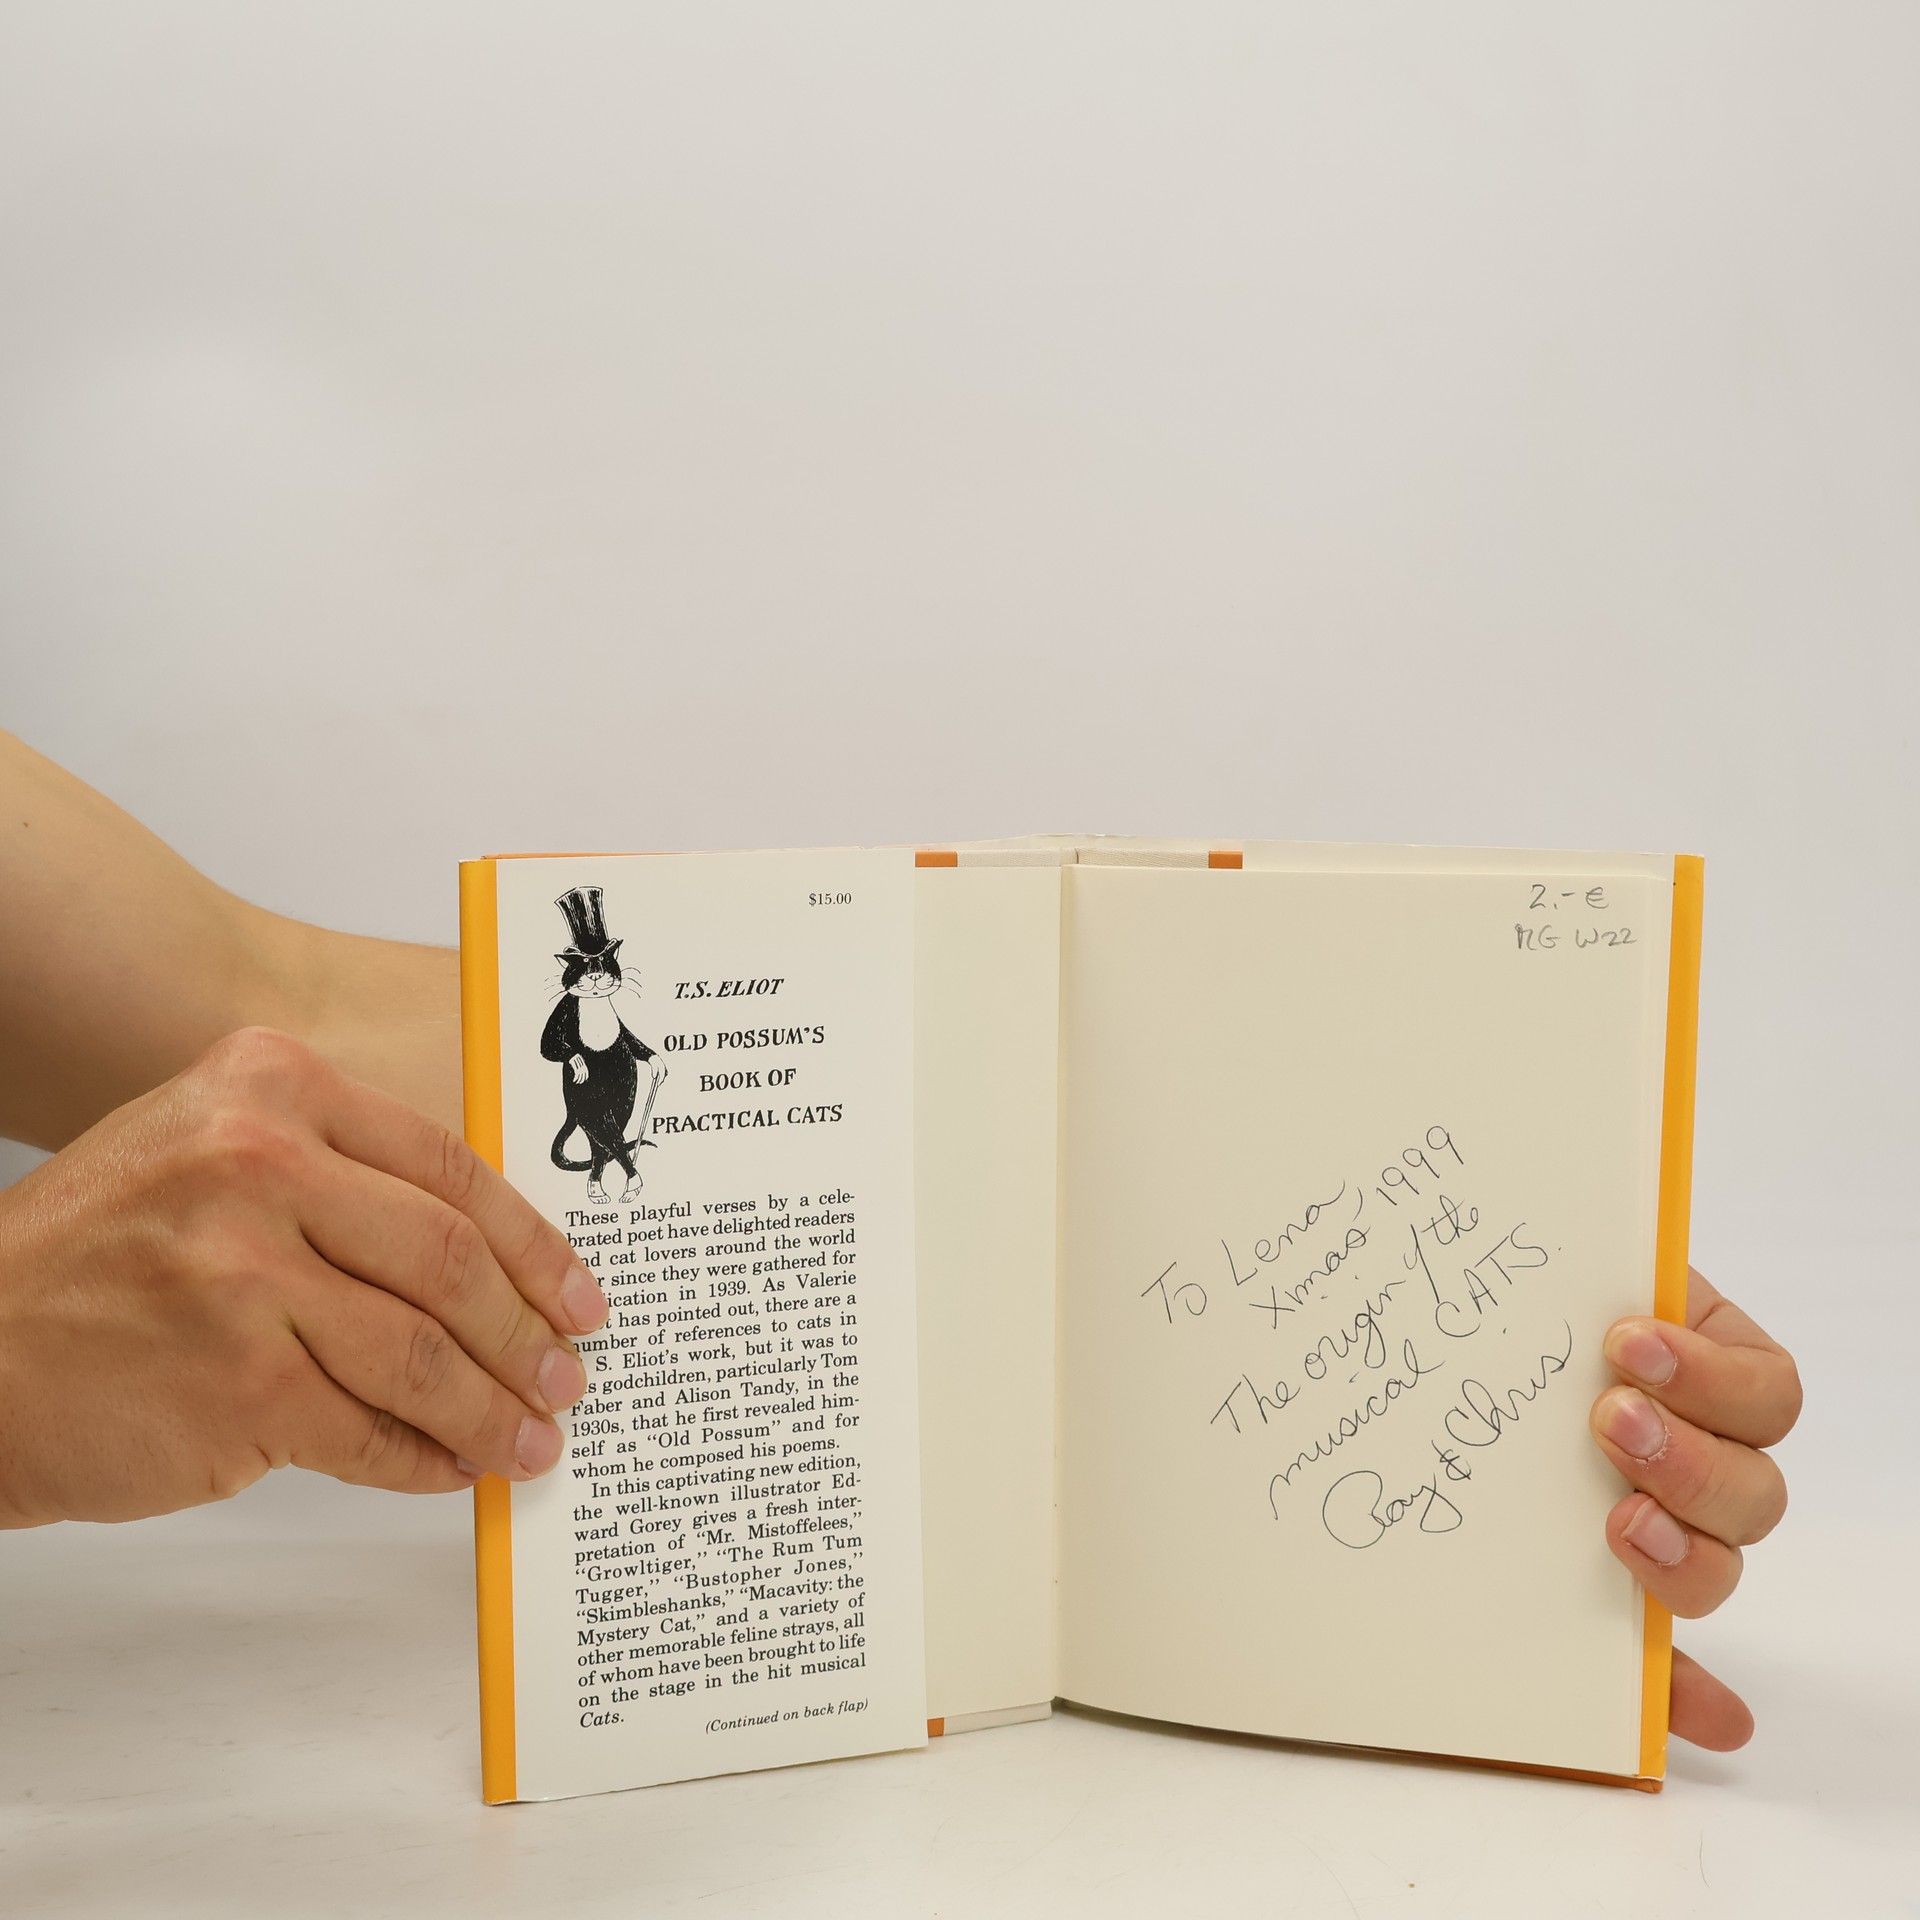 $15.00
T.S. ELIOT
OLD POSSUM'S
BOOK OF
PRACTICAL CATS
These playful verses by a cele-
brated poet have delighted readers
nd cat lovers around the world
r since they were gathered for
ication in 1939. As Valerie
t has pointed out, there are a
number of references to cats in
S. Eliot's work, but it was to
s godchildren, particularly Tom
Faber and Alison Tandy, in the
1930s, that he first revealed him-
self as “Old Possum” and for
whom he composed his poems.
In this captivating new edition,
the well-known illustrator Ed-
ward Gorey gives a fresh inter-
pretation of “Mr. Mistoffelees,”
“Growltiger,” “The Rum Tum
Tugger,” “Bustopher Jones,”
“Skimbleshanks,” “Macavity: the
Mystery Cat,” and a variety of
other memorable feline strays, all
of whom have been brought to life
on the stage in the hit musical
Cats.
(Continued on back flap)
2.-€
MG W22
To Lena
Xmas 1999
The origin of the
musical CATS.
Ray & Chris